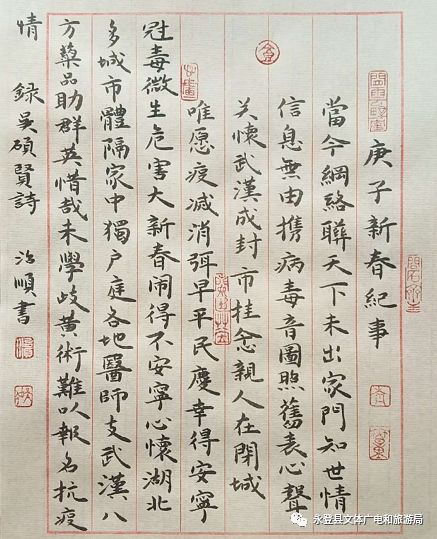 庚子新春紀事
當今網絡聯天下未出家門知世情
信息無由携病毒音圖照舊表心聲
关懷武漢成封市挂念親人在閉城
唯愿疫减消弭早平民慶幸得安寧
冠毒微生危害大新春闹得不安寧心懷湖北
多城市體隔家中獨户庭各地醫師支武漢八
方藥品助群英惜哉未學歧黄術難以報名抗疫
情 録吴碩賢詩 治順書
永登县文体广电和旅游局